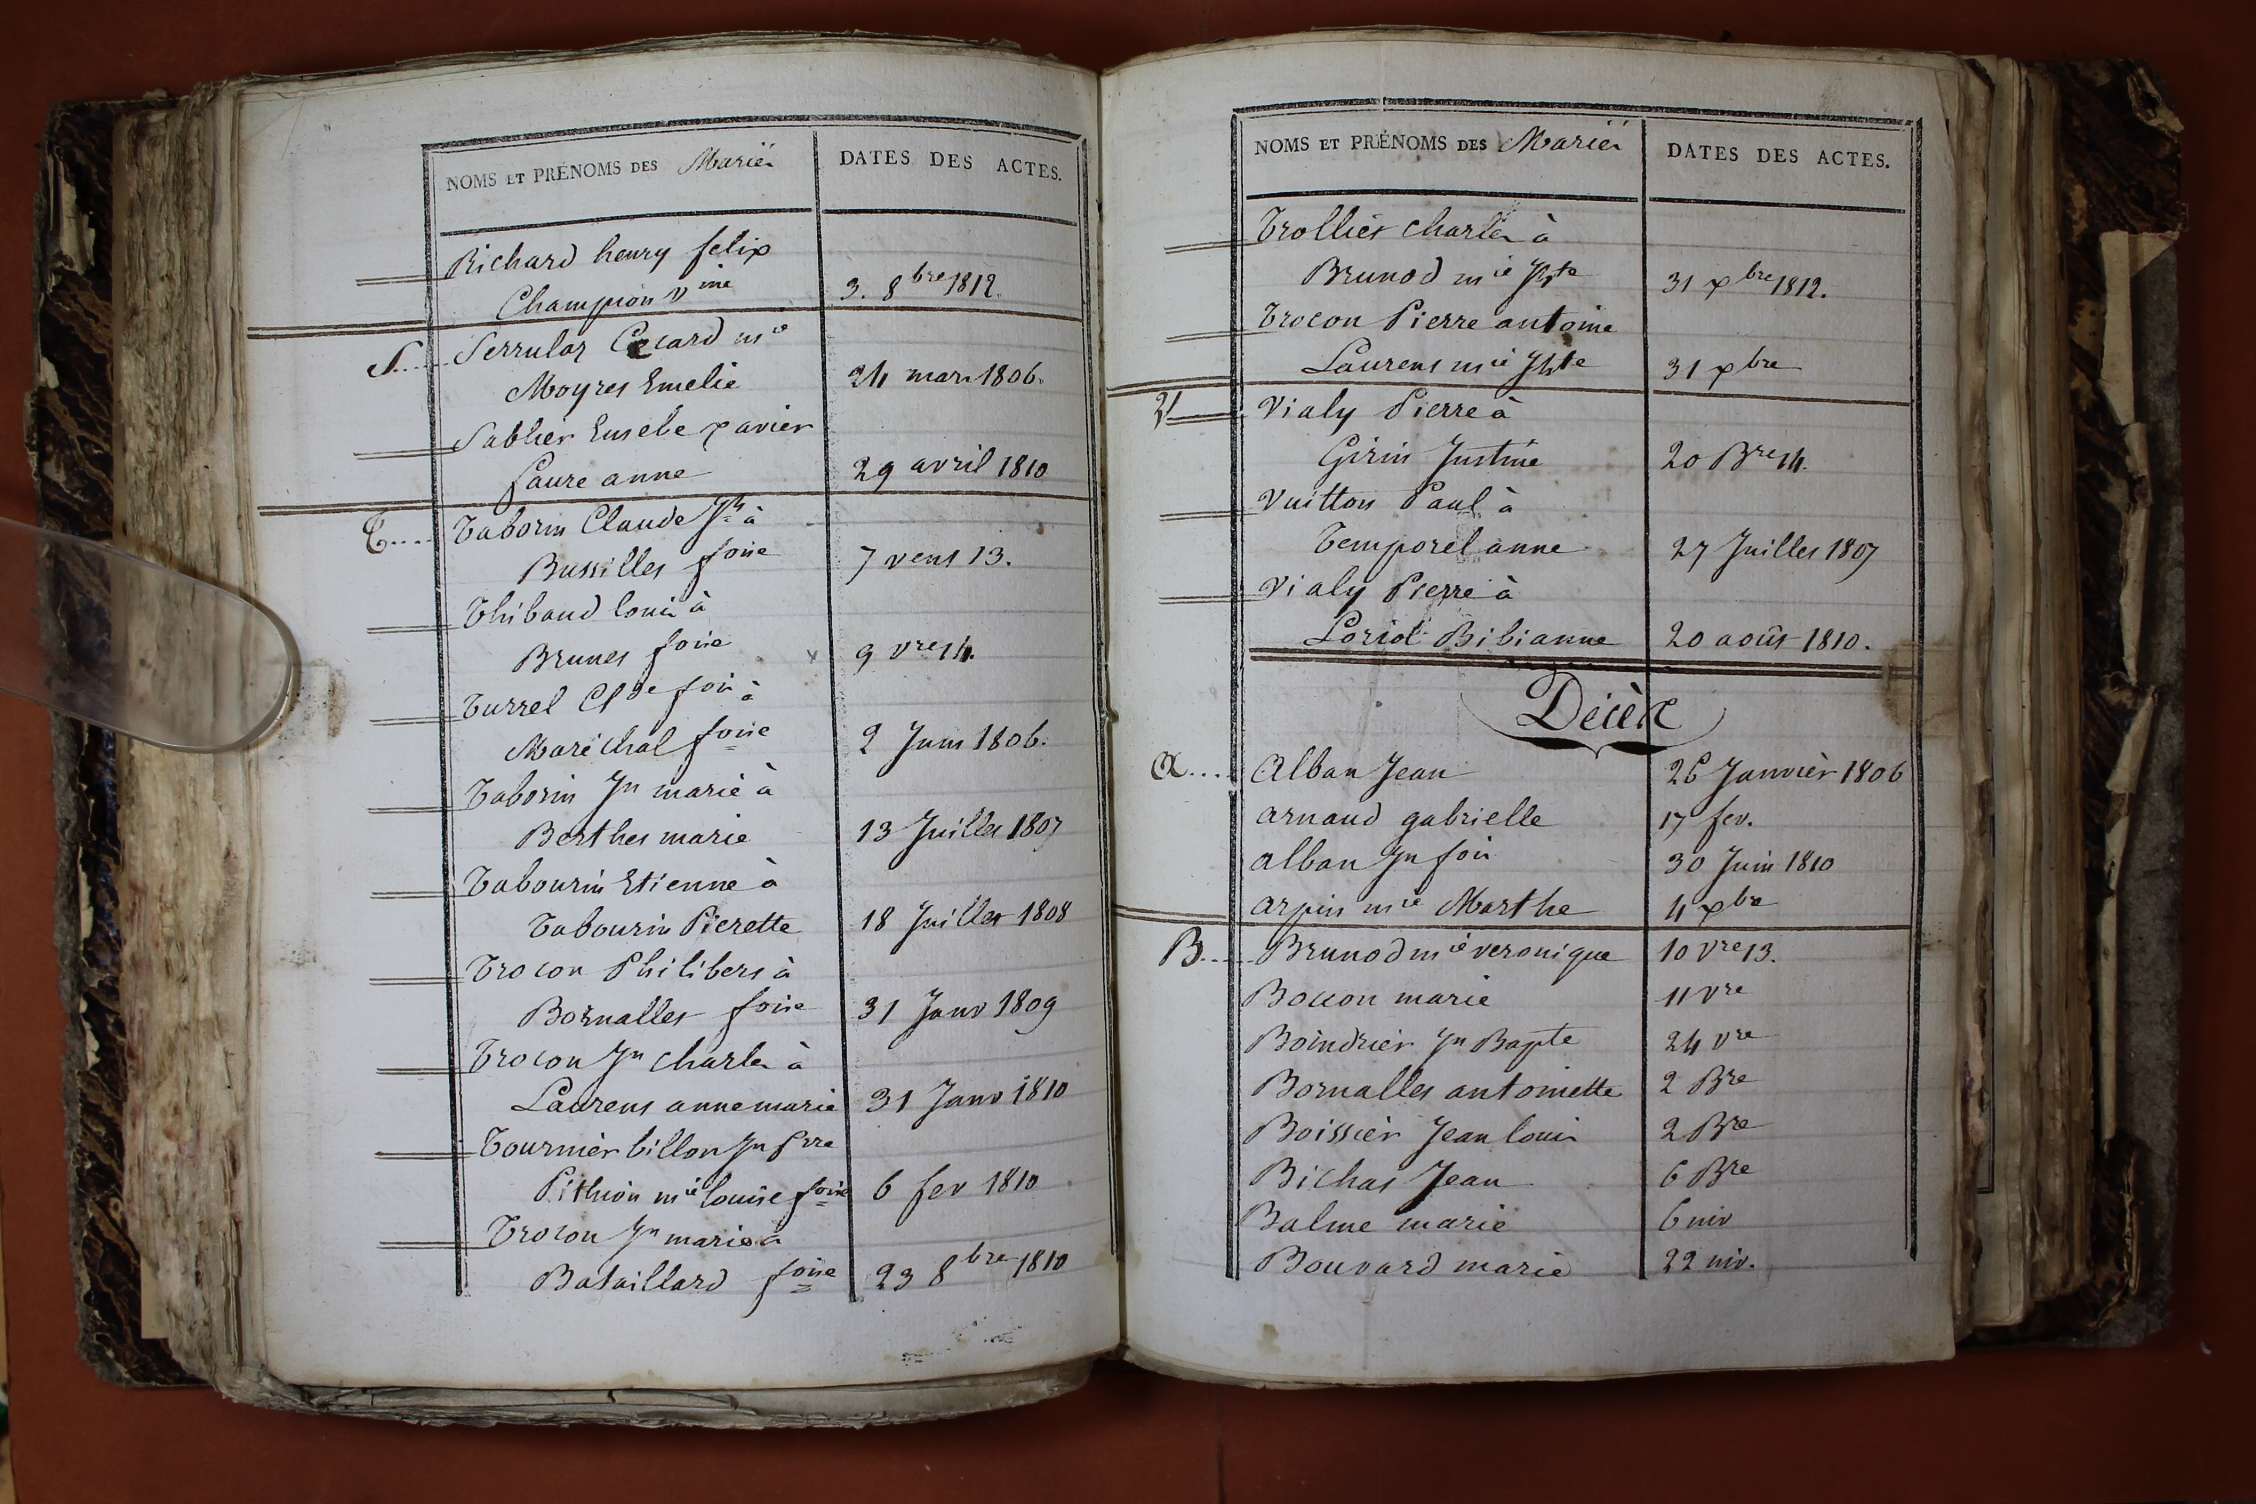 NOMS ET PRÉNOMS DES Mariés DATES DES ACTES.
Richard henry felix
Champion vine 3. 8bre 1812.
S.... Serrulaz Cécard mie
Moyres Emelie 24 mars 1806.
Sablier Eusebe xavier
faure anne 29 avril 1810
T.... Taborin Claude Jh à
Bussilles foise 7 vent 13.
Thibaud louis à
Brunes foise 9 vre 14.
Turrel Clde fois à
Maréchal foise 2 Juin 1806.
Taborin Jn marie à
Berthes marie 13 Juillet 1807
Tabourin Etienne à
Tabourin Pierette 18 Juillet 1808
Trocon Philibert à
Bornalles foise 31 Janv 1809
Trocon Jn charles à
Laurens anne marie 31 Janv 1810
Tournier billon Jn Prre
Pithion mie louise foise 6 fev 1810
Trocon Jn marie à
Bataillard foise 23 8bre 1810
NOMS ET PRÉNOMS DES Mariés DATES DES ACTES.
Trollier charles à
Brunod mie Jhte 31 xbre 1812.
Trocon Pierre antoine
Laurens mie Jhte 31 xbre
V Vialy Pierre à
Girin Justine 20 Bre 14.
Vuitton Paul à
Temporel anne 27 Juillet 1807
Vialy Pierre à
Loriol Bibianne 20 août 1810.
Décès
A.... Alban Jean 26 Janvier 1806
arnaud gabrielle 17 fev.
alban Jn fois 30 Juin 1810
arpin mie Marthe 4 xbre
B.... Brunod mie veronique 10 vre 13.
Boccon marie 11 vre
Boindrier Jn Bapte 24 vre
Bornalles antoinette 2 Bre
Boissier Jean louis 2 Bre
Bichat Jean 6 Bre
Balme marie 6 niv
Bouvard marie 22 niv.